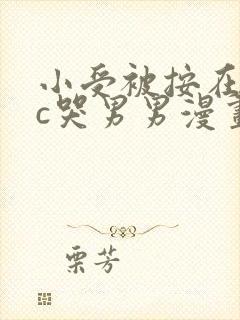 小受被按在
c哭男男漫画
栗芳